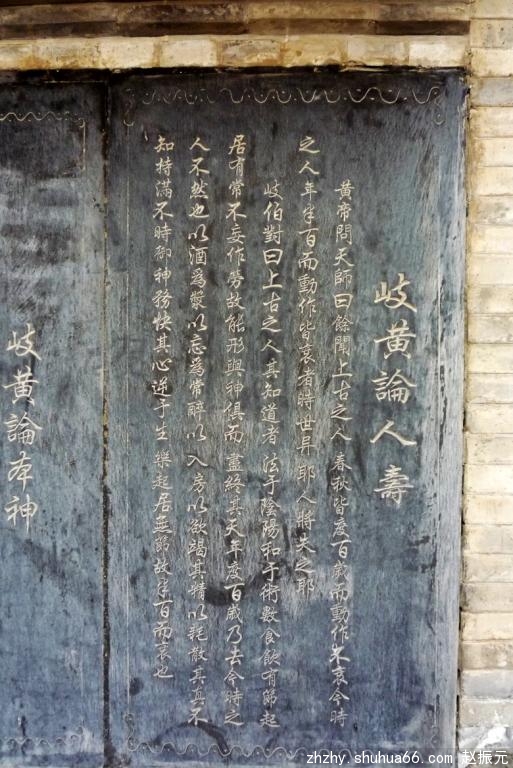 岐黄論人壽
黄帝問天師曰餘聞上古之人春秋皆度百歲而動作不衰今時
之人年半百而動作皆衰者時世异耶人將失之耶
岐伯對曰上古之人真知道者法于陰陽和于術數食飲有節起
居有常不妄作勞故能形與神俱而盡終其天年度百歲乃去今時之
人不然也以酒爲漿以忘爲常醉以入房以欲竭其精以耗散其真不
知持滿不時御神務快其心逆于生樂起居無節故半百而衰也
岐黄論本神
zhzhy.shuhua66.com 赵振元